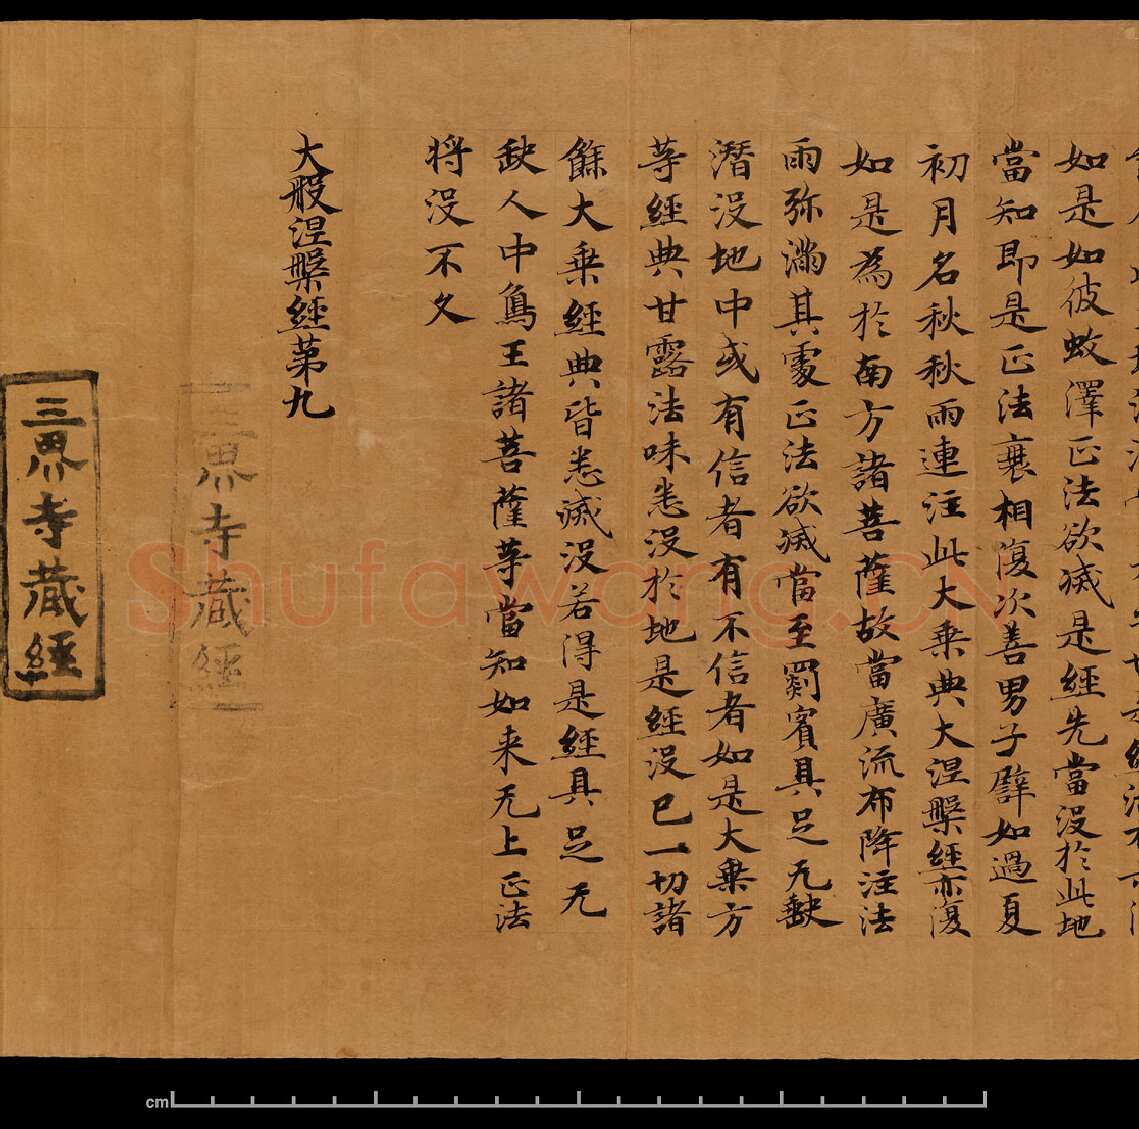 如是如彼蚊澤正法欲滅是經先當沒於此地
當知即是正法衰相復次善男子譬如過夏
初月名秋秋雨連注此大乗典大涅槃經亦復
如是為於南方諸菩薩故當廣流布降注法
雨弥滿其處正法欲滅當至罽賓具足无缺
潛沒地中或有信者有不信者如是大乗方
等經典甘露法味悉沒於地是經沒已一切諸
餘大乗經典皆悉滅沒若得是經具足无
缺人中象王諸菩薩等當知如来无上正法
将沒不久
大般涅槃經第九
三界寺藏經
三界寺藏經
Shufawang.CN
cm